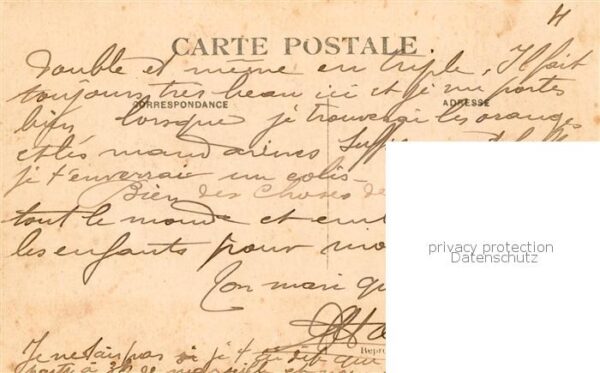 4
CARTE POSTALE
double et même en triple, Il fait
toujours très beau ici et je me portes
CORRESPONDANCE
ADRESSE
bien lorsque je trouverai les oranges
et les mandarines
je t'enverrai un colis
Bien des choses de
tout le monde et
les enfants pour moi
privacy protection
Datenschutz
Ton mari qui
Repro
Je ne sais pas si je t'ai dit que